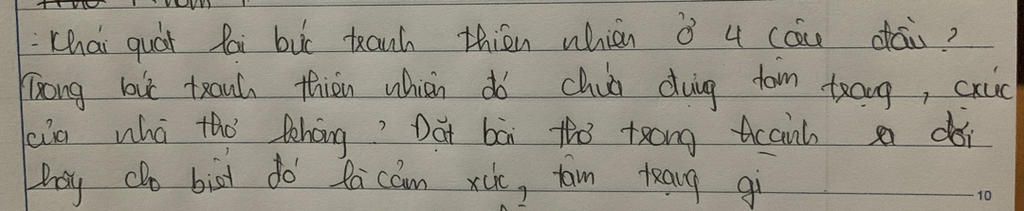 - Khái quát lại bức tranh thiên nhiên ở 4 câu đầu?
Trong bức tranh thiên nhiên đó chứa đựng tâm trạng, cxúc
của nhà thơ không? Đặt bài thơ trong hcảnh ra đời
hãy cho biết đó là cảm xúc, tâm trạng gì?
10